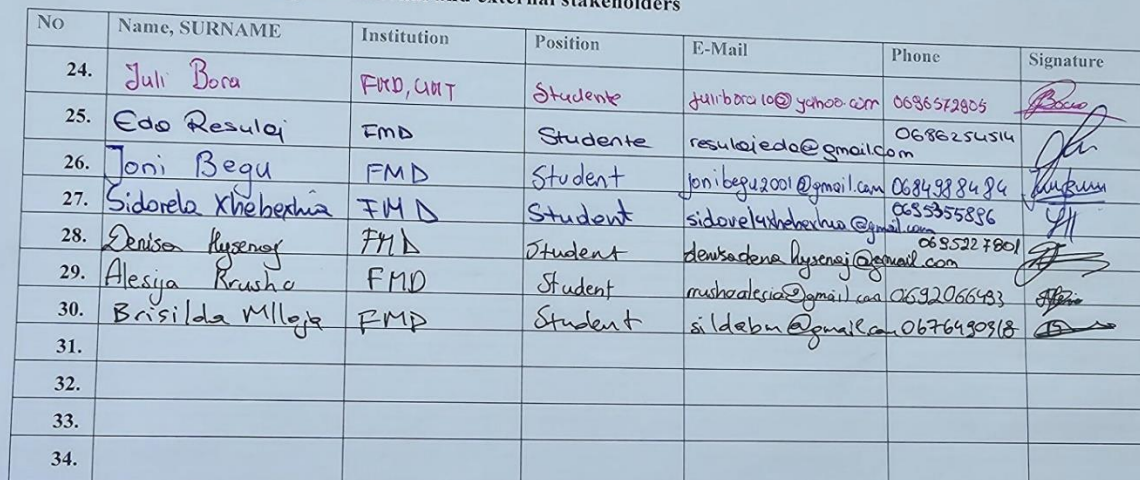 and external stakeholders
No Name, SURNAME Institution Position E-Mail Phone Signature
24. Juli Bora FMD, UMT Studente julibora10@yahoo.com 0696572905
25. Edo Resulaj FMD Studente resulajedo@gmail.com 0686254514
26. Joni Begu FMD Student jonibegu2001@gmail.com 0684988484
27. Sidorela Xhebexhia FMD Student 0695355896
28. Denisa Hysenaj FMD Student denisadenahysenaj@gmail.com 0695227801
29. Alesija Rrusho FMD Student 0692066493
30. Brisilda Mlloja FMD Student sildabm@gmail.com 0676490318
31.
32.
33.
34.